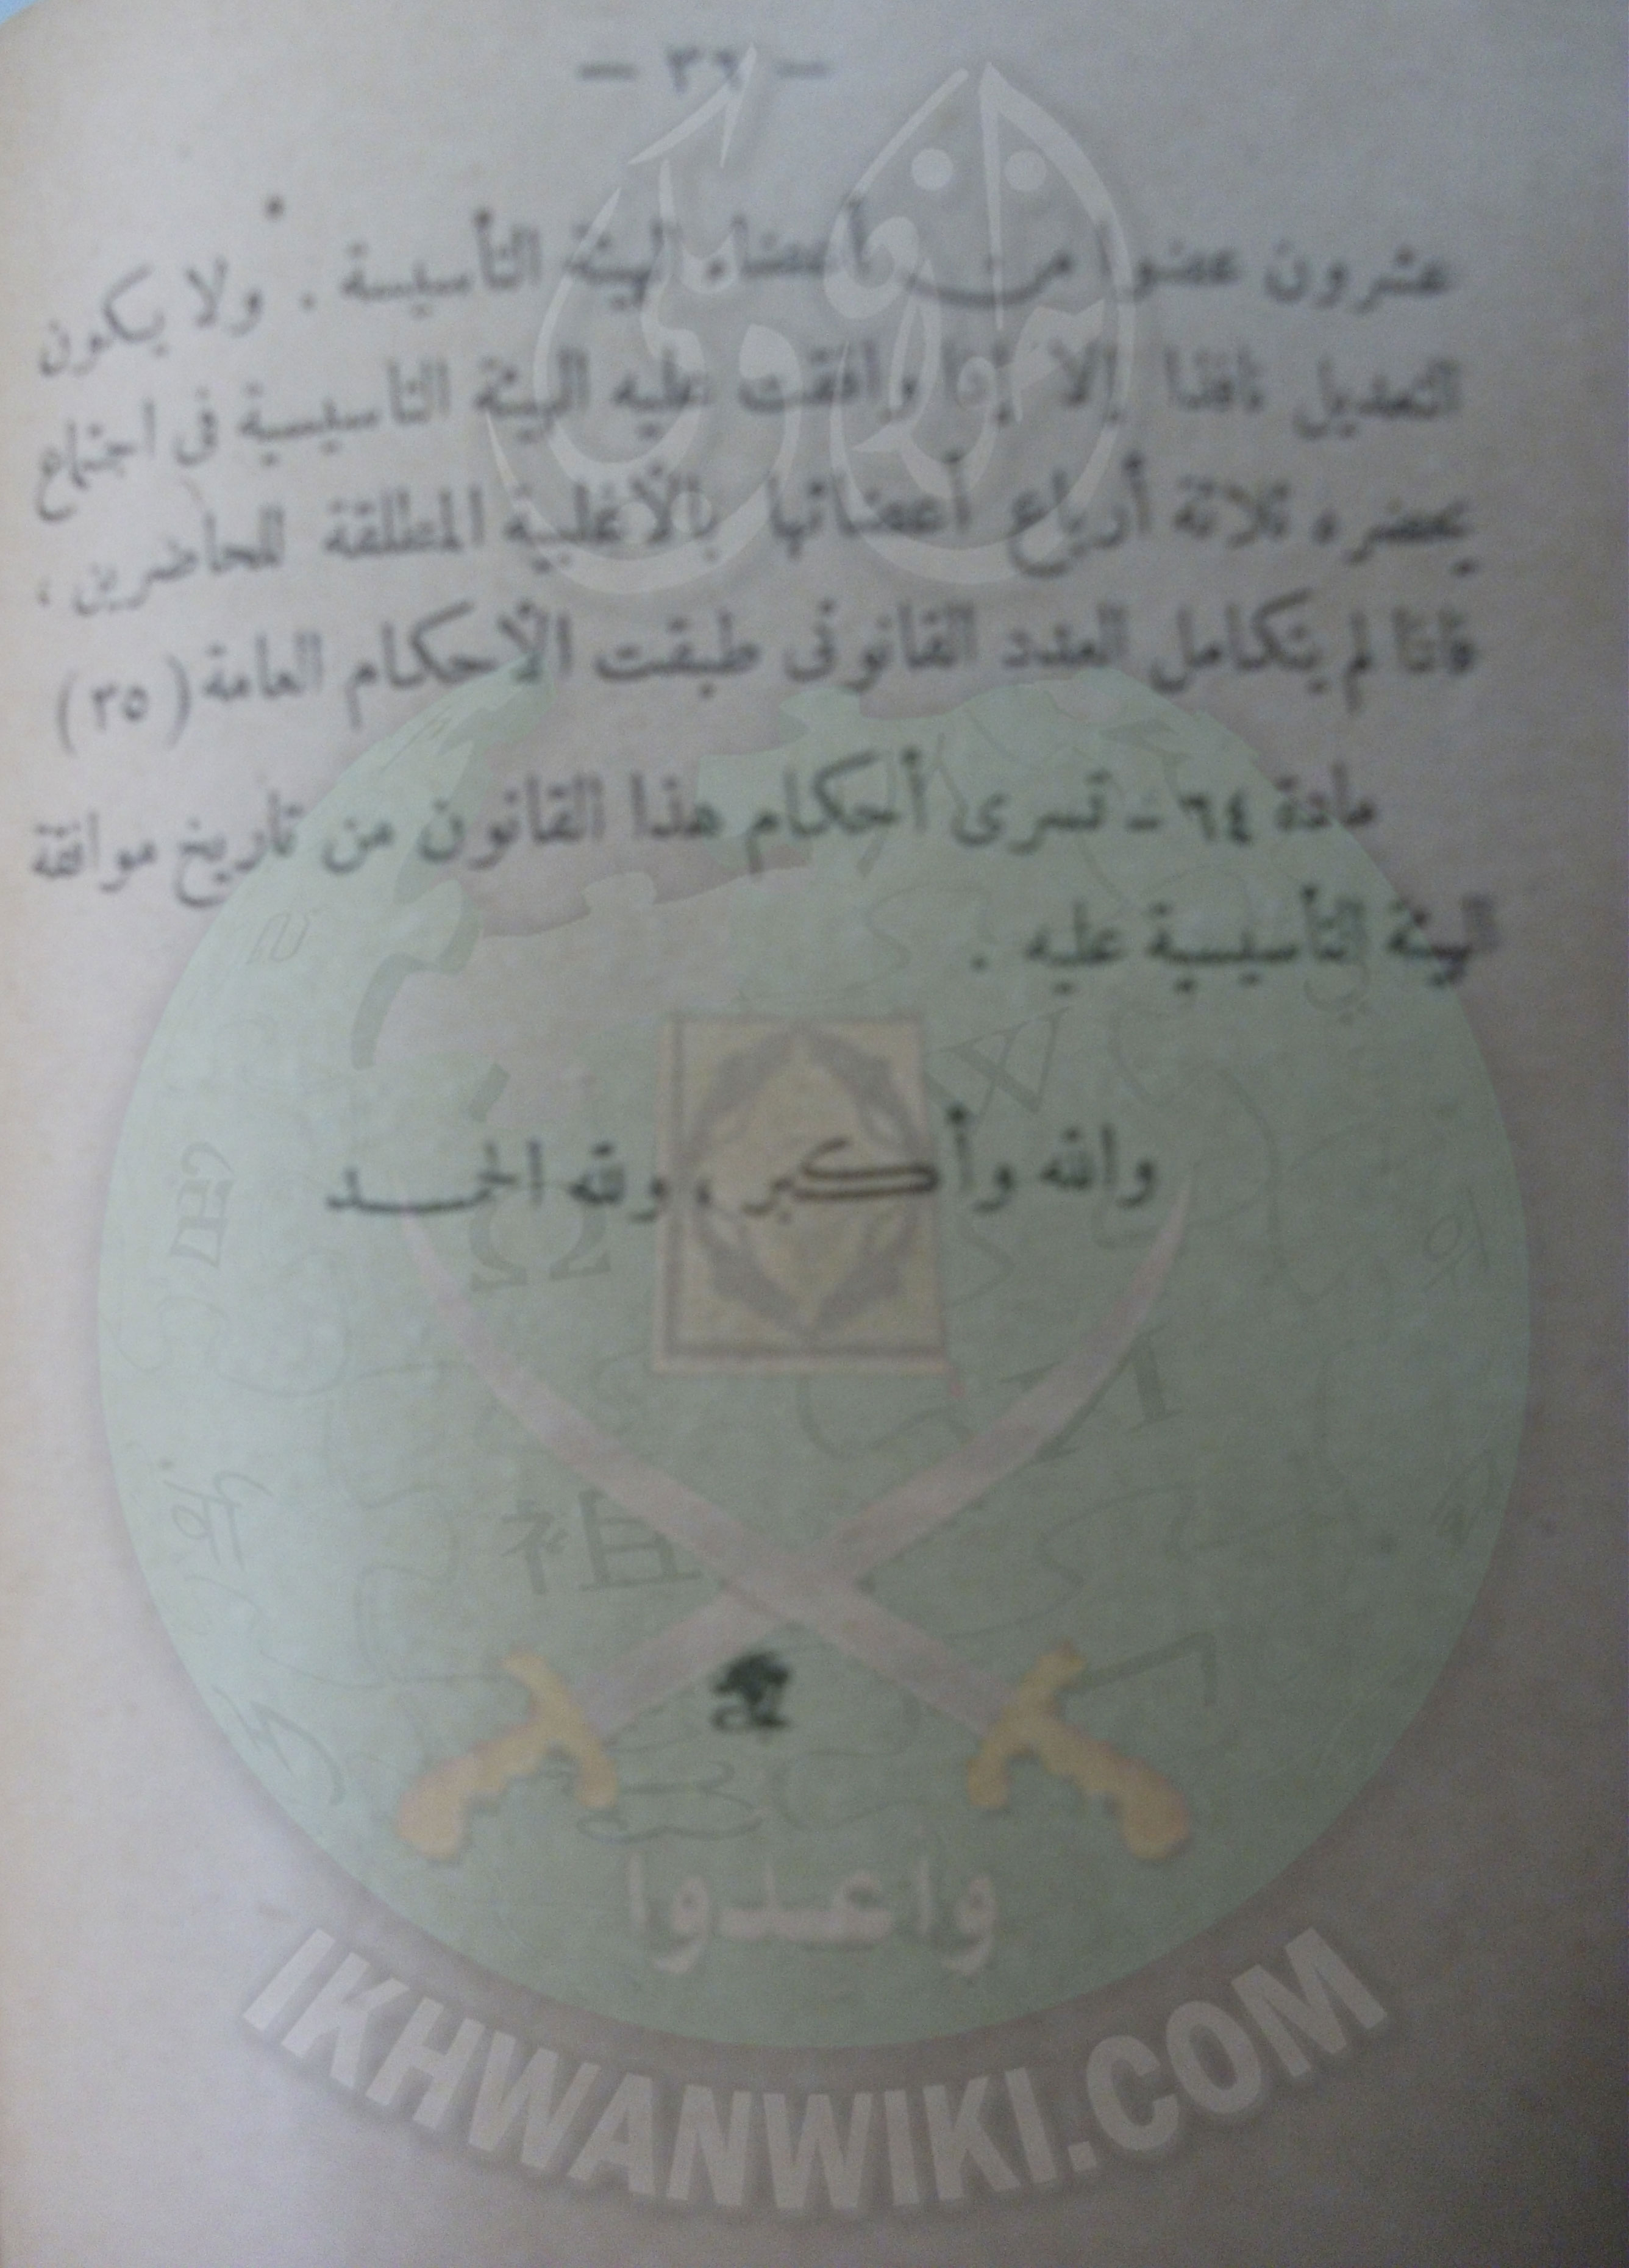 — ٣٦ —
عشرون عضوا من أعضاء الهيئة التأسيسة . ولا يكون
التعديل نافذا إلا إذا وافقت عليه الهيئة التأسيسية فى اجتماع
يحضره ثلاثة أرباع أعضائها بالأغلبية المطلقة للحاضرين ،
فاذا لم يتكامل العدد القانونى طبقت الأحكام العامة ( ٣٥ )
مادة ٦٤ - تسرى أحكام هذا القانون من تاريخ موافقة
الهيئة التأسيسية عليه .
والله وأكبر ، ولله الحمد
واعدوا
IKHWANWIKI.COM